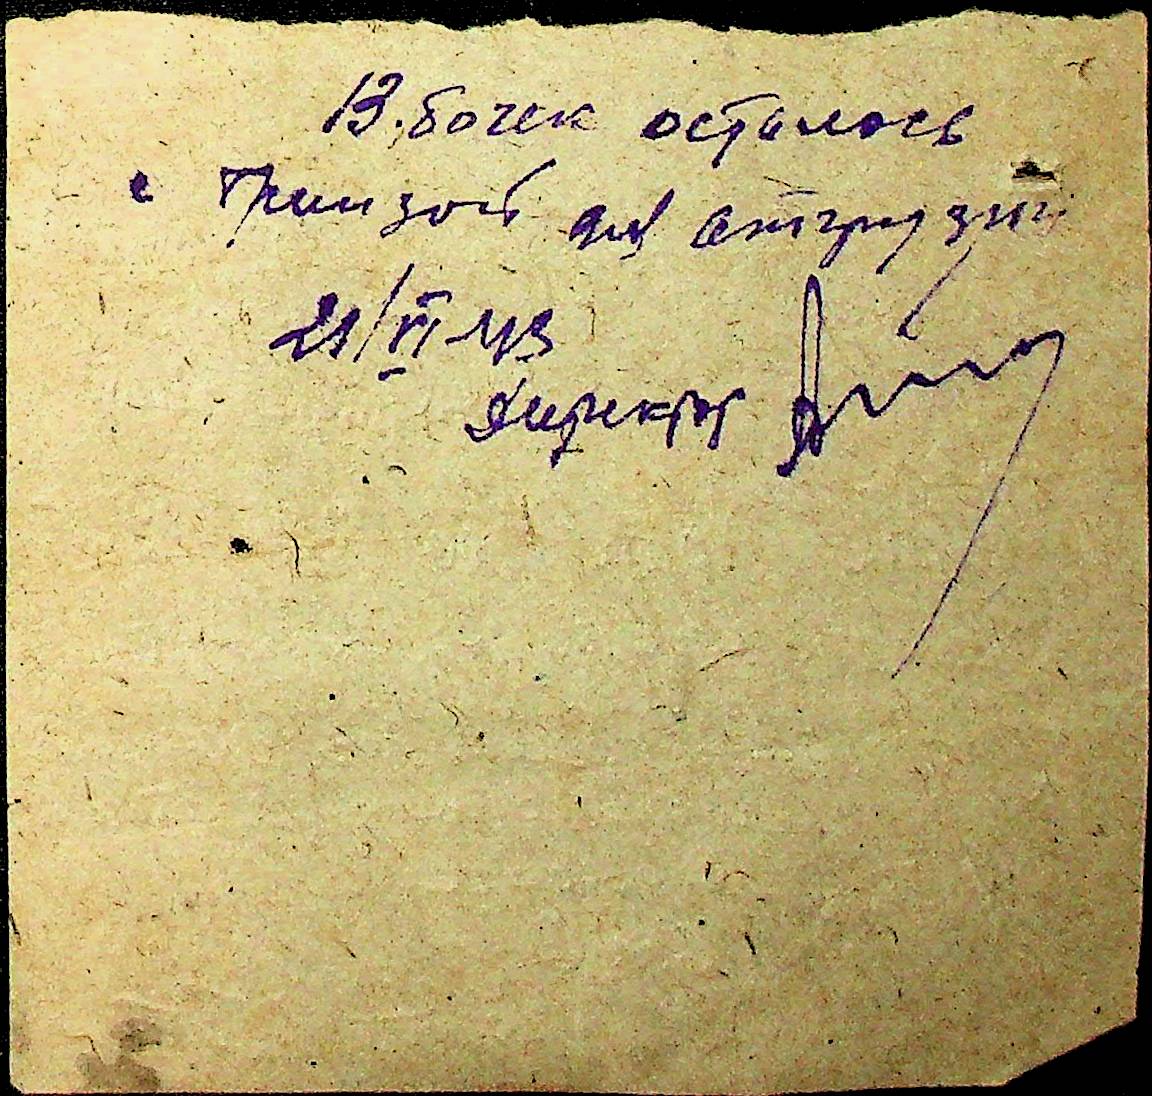 13. бочек осталось
с Тринзой для отгрузки
21/VI-43
Директор